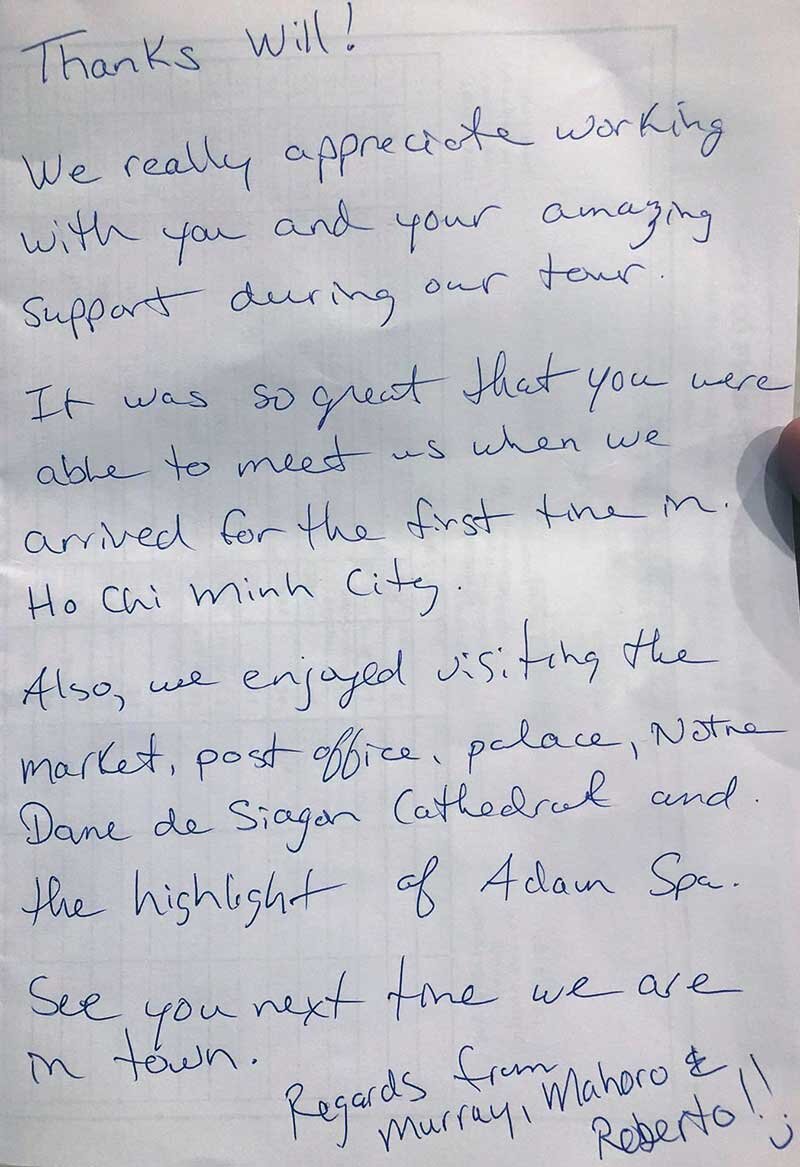 Thanks Will!
We really appreciate working
with you and your amazing
support during our tour.
It was so great that you were
able to meet us when we
arrived for the first time in.
Ho Chi Minh City.
Also, we enjoyed visiting the
market, post office, palace, Notre
Dame de Siagon Cathedral and.
the highlight of Adam Spa.
See you next time we are
in town.
Regards from
Murray, Mahoro &
Roberto!!